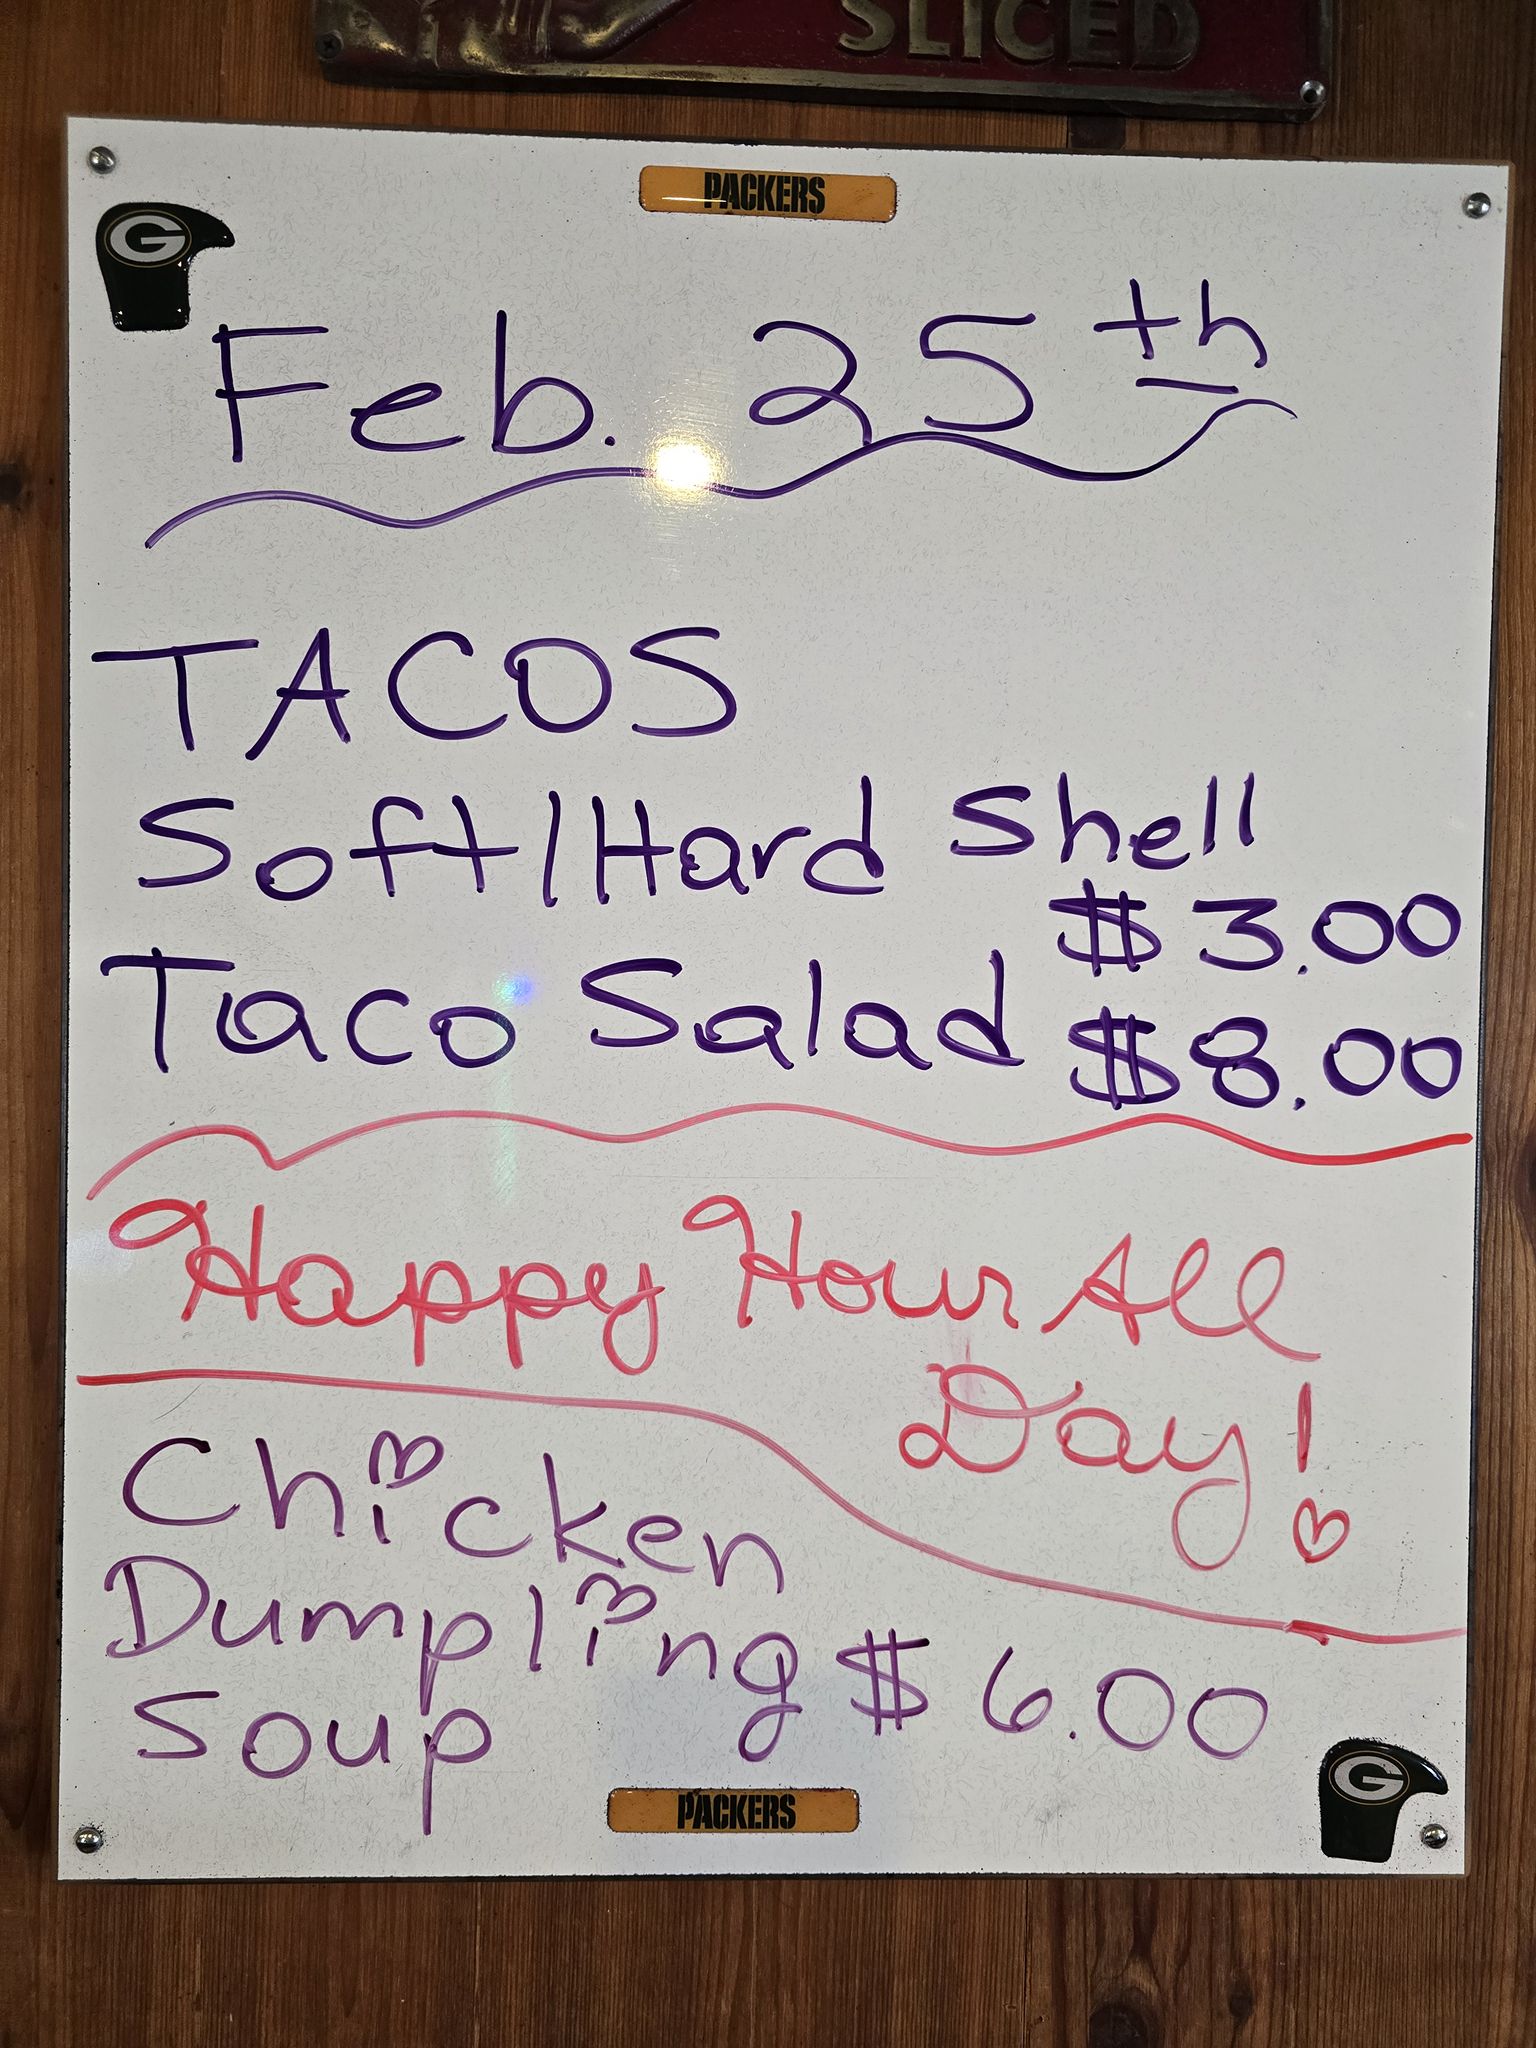 SLICED
PACKERS
G
Feb. 25th
TACOS
Soft/Hard Shell
$3.00
Taco Salad $8.00
Happy Hour All
Day!
Chicken
Dumpling $6.00
Soup
PACKERS
G